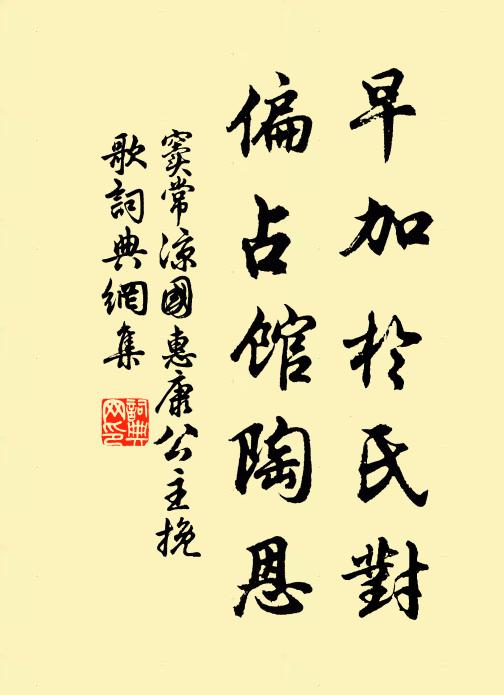 早加於氏對
偏占館陶恩
竇常涼國惠康公主挽
歌詞典網集
詞典
网印